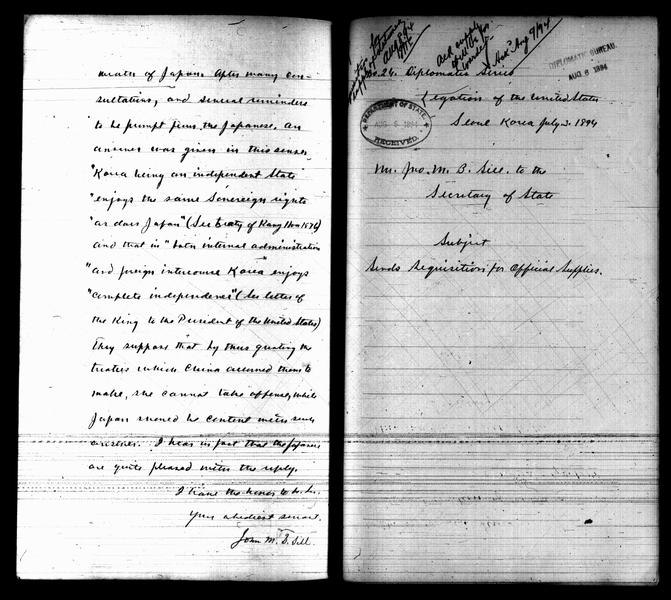 of Japan. After many con-
sultations, and several reminders
to be prompt from the Japanese, an
answer was given in this sense,
"Korea being an independent State
"enjoys the same Sovereign rights
"as does Japan" (See treaty of Kang Hoa 1876)
and that in "both internal administration
"and foreign intercourse Korea" enjoys
"complete independence" (See letter of
the King to the President of the United States)
They suppose that by thus quoting the
treaties which China allowed them to
make, she cannot take offense, while
Japan should be content with such
answer. I hear in fact that the Japanese
are quite pleased with the reply.
I have the honor to be, Sir,
Your obedient servant,
John M. B. Sill
Aug 8/94
Ack. Aug 9/94
DIPLOMATIC BUREAU.
AUG 8 1894
No. 24. Diplomatic Series
DEPARTMENT OF STATE.
AUG 1894
RECEIVED.
Legation of the United States
Seoul Korea July 1894
Mr. Jno. M. B. Sill. to the
Secretary of State
Subject
Sends Requisition for Official Supplies.